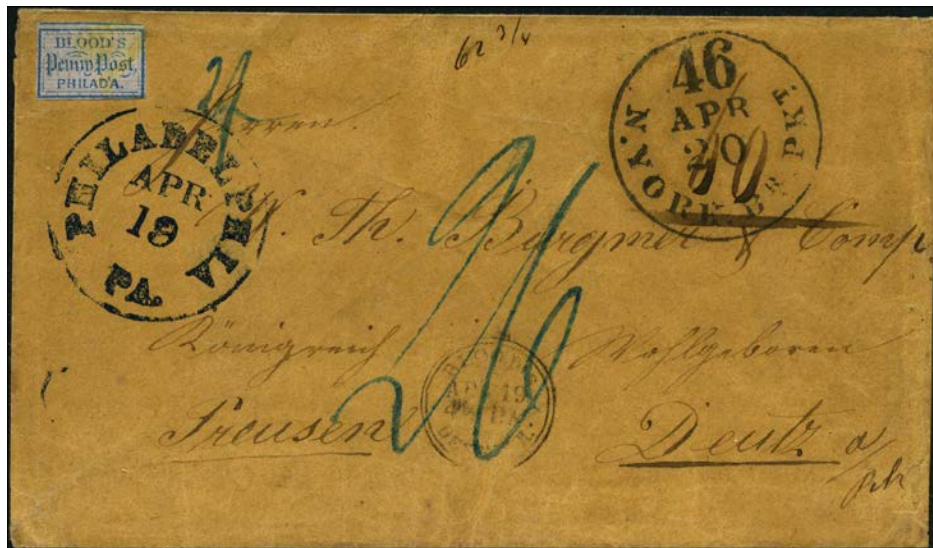 BLOOD'S
Penny Post,
PHILAD'A.
62 3/4
46
APR
20
N. YORK BR. PKT
PHILADELPHIA
APR
19
PA.
Herren.
W. Th. Burgmer & Comp.
26
Königreich Wohlgeboren
BLOOD'S
APR 19
Preusen Deutz a/
Rh